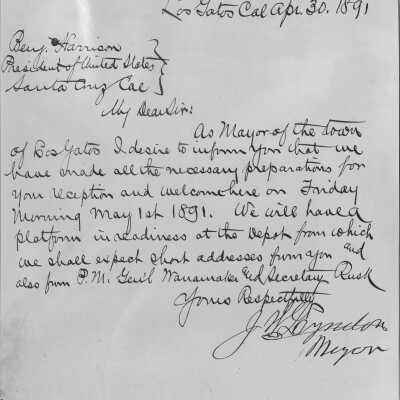 Los Gatos Cal Apr. 30. 1891
Benj. Harrison
President of United States
Santa Cruz Cal
My Dear Sir:
As Mayor of the town
of Los Gatos I desire to inform you that we
have made all the necessary preparations for
your reception and welcome here on Friday
Morning May 1st 1891. We will have a
platform in readiness at the depot from which
we shall expect short addresses from you and
also from P.M. Gen'l Wanamaker and Secretary Rusk
Yours Respectfully
J W Lyndon
Mayor